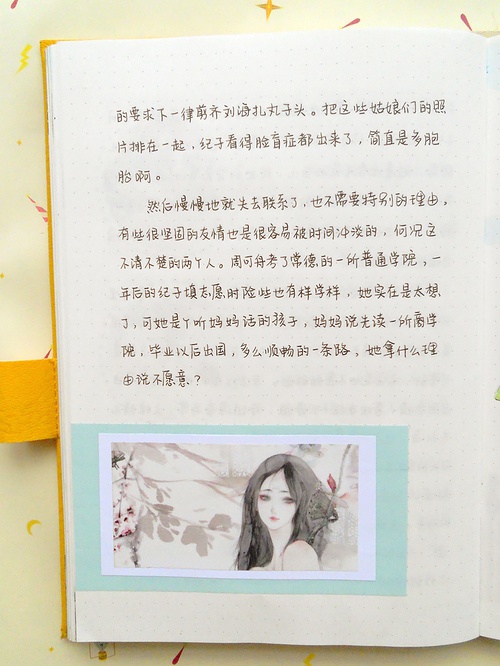 的要求下一律剪齐刘海扎丸子头。把这些姑娘们的照
片排在一起，纪子看得脸盲症都出来了，简直是多胞
胎啊。
然后慢慢地就失去联系了，也不需要特别的理由，
有些很坚固的友情也是很容易被时间冲淡的，何况这
不清不楚的两个人。周可舟考了常德的一所普通学院，一
年后的纪子填志愿时险些也有样学样，她实在是太想
了，可她是个听妈妈话的孩子，妈妈说先读一所商学
院，毕业以后出国，多么顺畅的一条路，她拿什么理
由说不愿意？